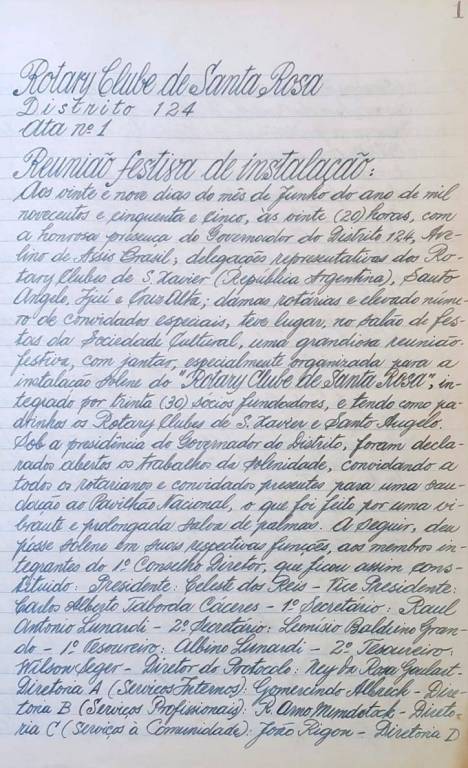 1
Rotary Clube de Santa Rosa
Distrito 124
Ata nº 1
Reunião festiva de instalação:
Aos vinte e nove dias do mês de Junho do ano de mil
novecentos e cinquenta e cinco, às vinte (20) horas, com
a honrosa presença do Governador do Distrito 124, Ave-
lino de Assis Brasil; delegações representativas dos Ro-
tary Clubes de S. Xavier (República Argentina), Santo
Angelo, Ijui e Cruz Alta; damas rotárias e elevado núme-
ro de convidados especiais, teve lugar, no salão de fes-
tas da Sociedade Cultural, uma grandiosa reunião
festiva, com jantar, especialmente organizada para a
instalação solene do "Rotary Clube de Santa Rosa", in-
tegrado por trinta (30) sócios fundadores, e tendo como pa-
drinhos os Rotary Clubes de S. Xavier e Santo Angelo.
Sob a presidência do Governador do Distrito, foram decla-
rados abertos os trabalhos da solenidade, convidando a
todos os rotarianos e convidados presentes para uma sau-
dação ao Pavilhão Nacional, o que foi feito por uma vi-
brante e prolongada salva de palmas. A seguir, deu
posse solene em suas respectivas funções, aos membros in-
tegrantes do 1º Conselho Diretor, que ficou assim cons-
tituido: Presidente: Celest dos Reis - Vice Presidente:
Carlos Alberto Taborda Cáceres - 1º Secretário: Raul
Antonio Lunardi - 2º Secretário: Leonísio Balduino Gran-
do - 1º Tesoureiro: Albino Lunardi - 2º Tesoureiro:
Wilson Seger - Diretor do Protocolo: Ney da Goulart -
Diretoria A (Serviços Internos): Gomercindo - Dire-
toria B (Serviços Profissionais): R. Arno - Direto-
ria C (Serviços à Comunidade): João Rigon - Diretoria D